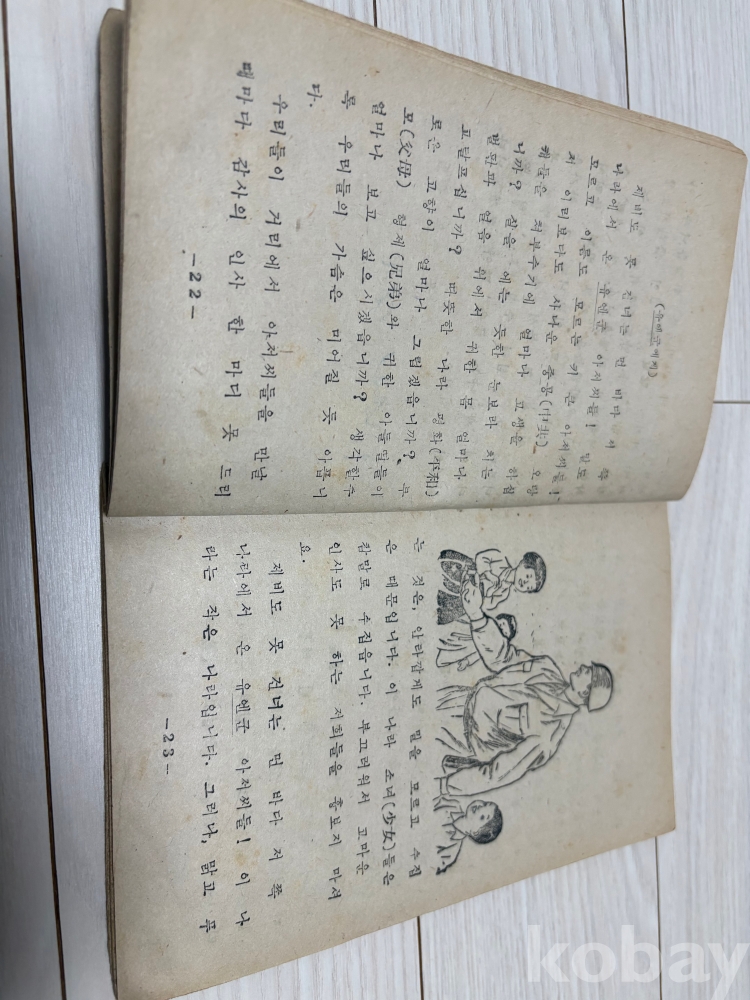 (유엔군에게)
제비도 못 건너는 먼 바다 저 쪽
나라에서 온 유엔군 아저씨들! 말도
모르고 이름도 모르는 키 큰 아저씨들!
저 이리보다도 사나운 중공(中共) 오랑
캐들을 쳐부수기에 얼마나 고생을 하십
니까? 살을 에는 듯한 눈보라 치는
벌판과 얼음 위에서 귀한 몸 얼마나
고달프십니까? 따뜻한 나라 평화(平和)
로운 고향이 얼마나 그립겠읍니까? 부
모(父母) 형제(兄弟)와 귀한 아들딸들이
얼마나 보고 싶으시겠읍니까? 생각할수
록 우리들의 가슴은 미어질 듯 아픕니
다.
우리들이 거리에서 아저씨들을 만날
때마다 감사의 인사 한 마디 못 드리
-22-
는 것은, 안타깝게도 말을 모르고 수집
은 때문입니다. 이 나라 소녀(少女)들은
참말로 수집습니다. 부끄러워서 고마운
인사도 못 하는 저희들을 흉보지 마셔
요.
제비도 못 건너는 먼 바다 저 쪽
나라에서 온 유엔군 아저씨들! 이 나
라는 작은 나라입니다. 그러나, 맑고 푸
-23-
kobay